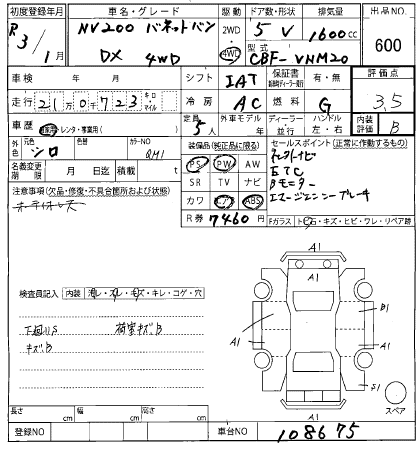 初度登録年月 車名・グレード 駆動 ドア数・形状 排気量 出品NO.
R3/1月 NV200 バネットバン 2WD 4WD 5 V 1600cc 600
DX 4WD 型式 CBF-VNM20
車検 年 月 シフト IAT 保証書 有・無 評価点
走行 21万0千723 キロ・マイル 冷房 AC 燃料 G 3.5
車歴 自家 レンタ・事業用( ) 定員 5人 外車モデル 年 ディーラー 並行 ハンドル 左・右 内装評価 B
外色 元色 シロ 色替 カラーNO QM1 装備品(純正品に限る) セールスポイント(正常に作動するもの)
名義変更期限 月 日迄 積載 t PS PW AW
SR TV ナビ ETC
注意事項(欠品・修復・不具合箇所および状態) カワ エアB ABS Bモニター
オーディオレス エマージェンシーブレーキ
R券 7460円 Fガラス トビ石・キズ・ヒビ・ワレ・リペア跡
検査員記入 内装 汚レ・スレ・キズ・キレ・コゲ・穴
A1
A1
B1
A1
A1
下廻りS 荷室キズB
キズB
S1
A1
スペア
長さ cm 幅 cm 高さ cm
登録NO 車台NO 108675